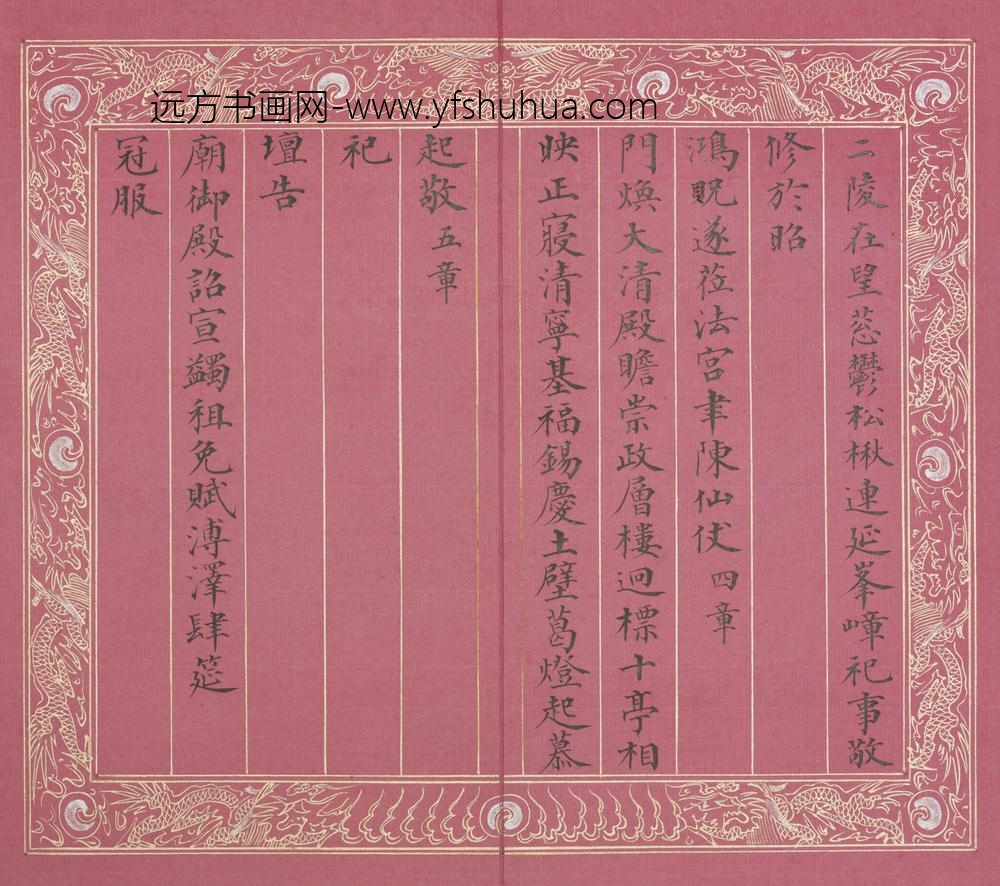 远方书画网-www.yfshuhua.com
二陵在望蔥鬱松楸連延峯嶂祀事敬
修於昭
鴻貺遂莅法宮聿陳仙仗四章
門煥大清殿瞻崇政層樓迥標十亭相
映正寢清寧基福錫慶土壁葛燈起慕
起敬五章
祀
壇告
廟御殿詔宣蠲租免賦溥澤肆筵
冠服